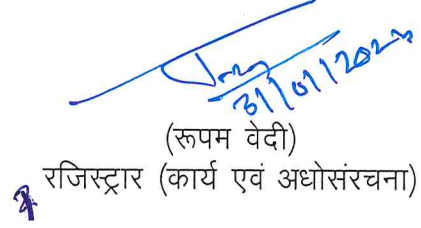 31/01/2023
(रूपम वेदी)
रजिस्ट्रार (कार्य एवं अधोसंरचना)